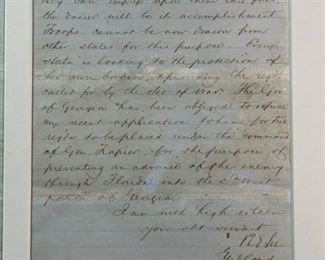 they can impress upon them this fact,
the easier will be its accomplishment.
Troops cannot be now drawn from
other states for this purpose. Every
state is looking to the protection of
her own borders, & providing the regts
called for by the Sec of War. The Gov
of Georgia has been obliged to refuse
my recent application to him, for two
regts to be placed under the command
of Gen Trapier, for the purpose of
preventing an advance of the enemy
through Florida into the S. West
portion of Georgia
I am with high esteem
your obt servant
R E Lee